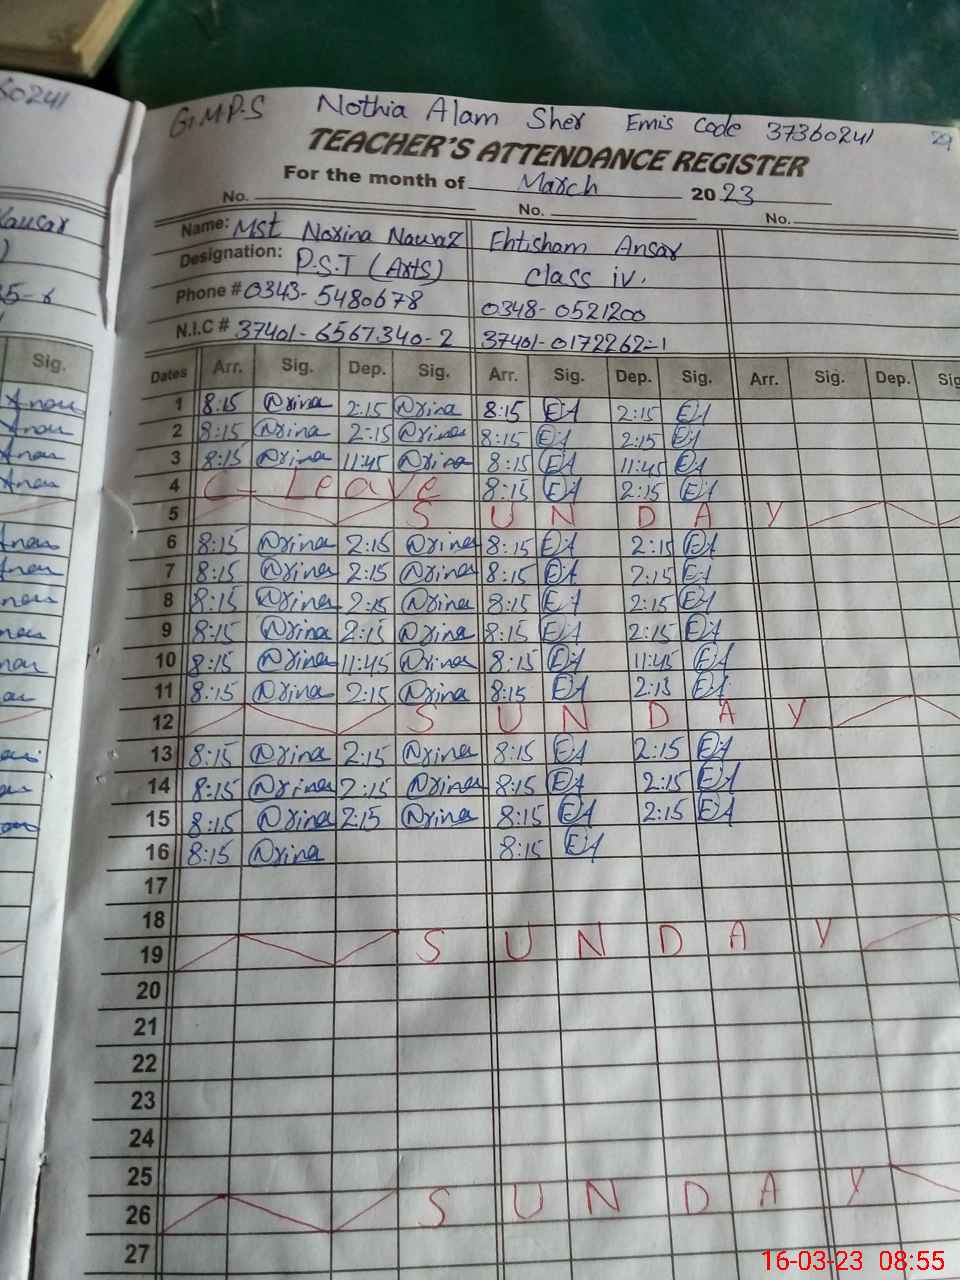 50241
G.M.P.S Nothia Alam Sher Emis Code 37360241 29
TEACHER'S ATTENDANCE REGISTER
For the month of March 2023
No. No. No.
Name: Mst Norina Nawaz Ehtisham Ansar
Designation: P.S.T (Arts) Class iv.
Phone # 0343-5480678 0348-0521200
N.I.C # 37401-6567340-2 37401-0172262-1
Sig.
Dates Arr. Sig. Dep. Sig. Arr. Sig. Dep. Sig. Arr. Sig. Dep. Sig
1 8:15 @rina 2:15 @rina 8:15 EA 2:15 EA
2 8:15 @rina 2:15 @rina 8:15 EA 2:15 EA
3 8:15 @rina 11:45 @rina 8:15 EA 11:45 EA
4 C-Leave 8:15 EA 2:15 EA
5 SUNDAY
6 8:15 @rina 2:15 @rina 8:15 EA 2:15 EA
7 8:15 @rina 2:15 @rina 8:15 EA 2:15 EA
8 8:15 @rina 2:15 @rina 8:15 EA 2:15 EA
9 8:15 @rina 2:15 @rina 8:15 EA 2:15 EA
10 8:15 @rina 11:45 @rina 8:15 EA 11:45 EA
11 8:15 @rina 2:15 @rina 8:15 EA 2:15 EA
12 SUNDAY
13 8:15 @rina 2:15 @rina 8:15 EA 2:15 EA
14 8:15 @rina 2:15 @rina 8:15 EA 2:15 EA
15 8:15 @rina 2:15 @rina 8:15 EA 2:15 EA
16 8:15 @rina 8:15 EA
17
18
19 SUNDAY
20
21
22
23
24
25
26 SUNDAY
27
16-03-23 08:55